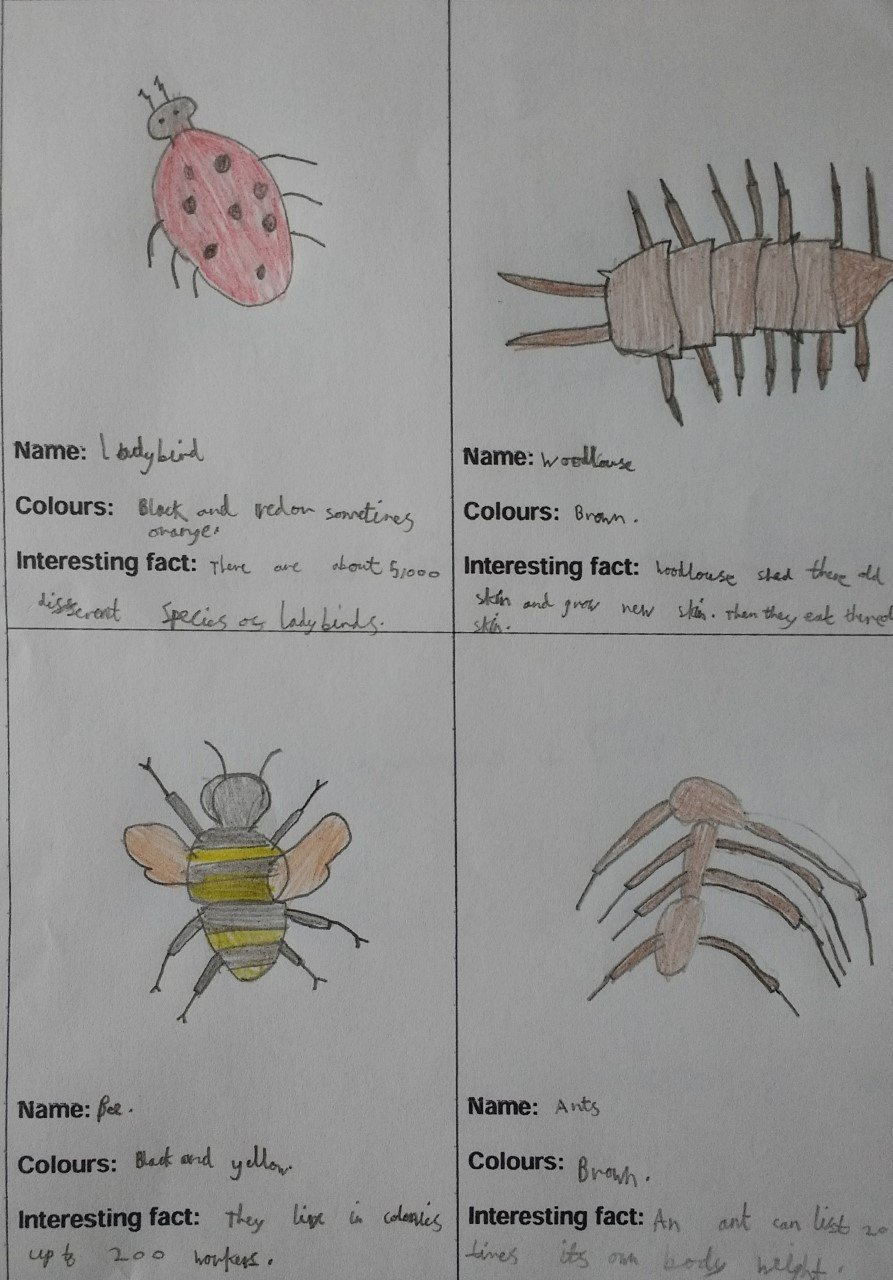 Name: Ladybird
Colours: Black and redon sometimes
orange.
Interesting fact: There are about 5,000
disserent Species os ladybirds.
Name: Woodlouse
Colours: Brown.
Interesting fact: Woodlouse shed there old
skin and grow new skin. Then they eat there
skin.
Name: Bee.
Colours: Black and yellow.
Interesting fact: They live in colonies
up to 200 workers.
Name: Ants
Colours: Brown.
Interesting fact: An ant can list 20
times its own body weight.